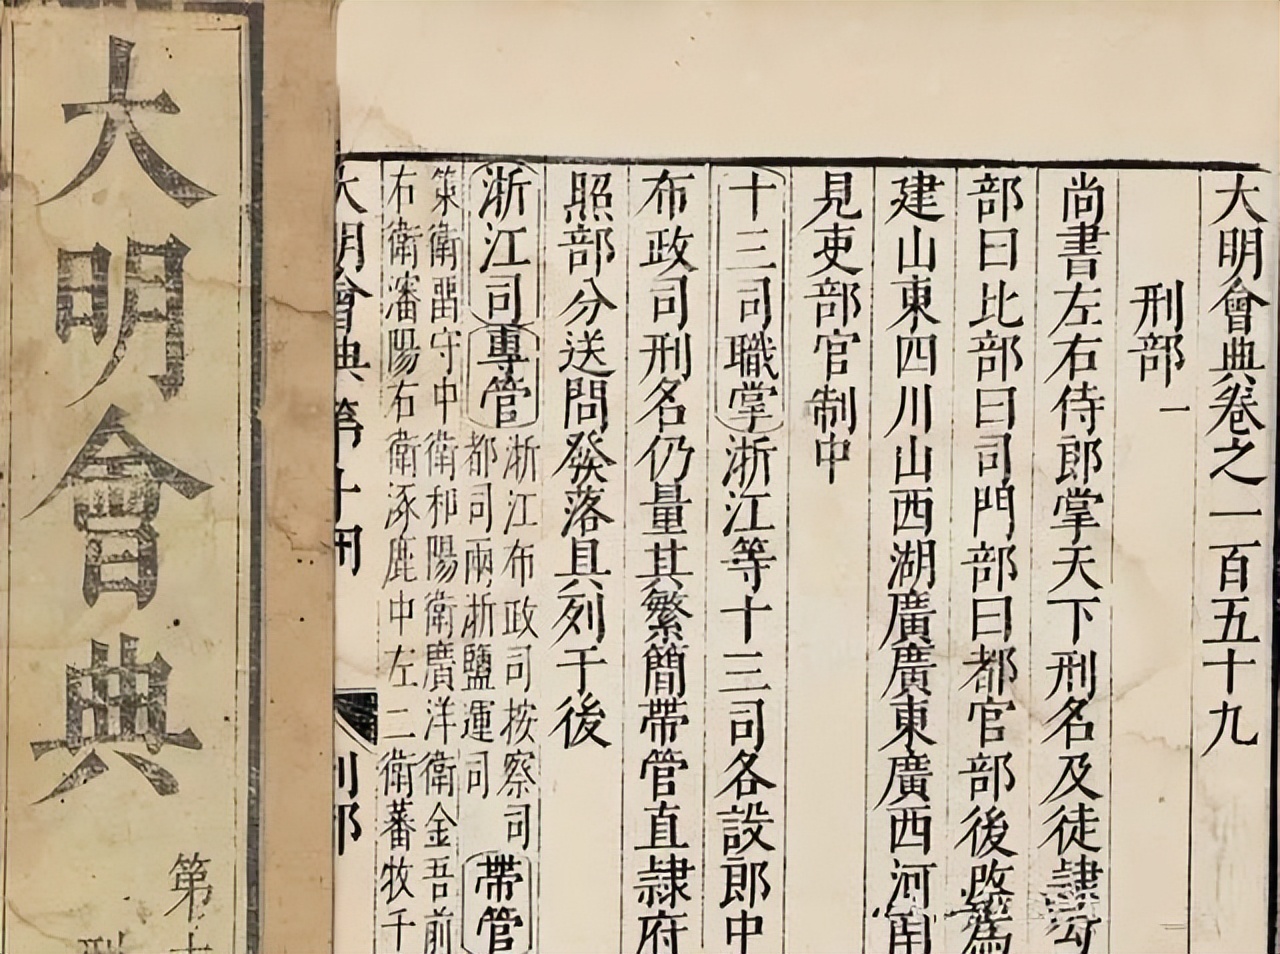 大明會典卷之一百五十九
刑部一
尚書左右侍郎掌天下刑名及徒隸勾
部曰比部曰司門部曰都官部後改為
建山東四川山西湖廣廣東廣西河南
見吏部官制中
十三司職掌浙江等十三司各設郎中
布政司刑名仍量其繁簡帶管直隸府
照部分送問發落具列于後
浙江司專管
浙江布政司按察司
都司兩浙鹽運司
帶管
策衛畱守中衛和陽衛廣洋衛金吾前
右衛瀋陽右衛涿鹿中左二衛蕃牧千
大明會典 第十冊
刑部
大明會典
第十
刑